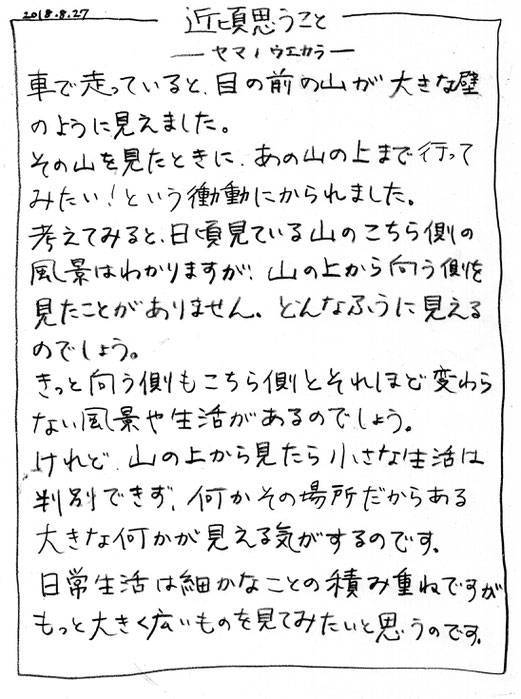 2018.8.27
近頃思うこと
―ヤマノウエカラ―
車で走っていると、目の前の山が大きな壁
のように見えました。
その山を見たときに、あの山の上まで行って
みたい!という衝動にかられました。
考えてみると、日頃見ている山のこちら側の
風景はわかりますが、山の上から向う側を
見たことがありません。どんなふうに見える
のでしょう。
きっと向う側もこちら側とそれほど変わら
ない風景や生活があるのでしょう。
けれど、山の上から見たら小さな生活は
判別できず、何かその場所だからある
大きな何かが見える気がするのです。
日常生活は細かなことの積み重ねですが
もっと大きく広いものを見てみたいと思うのです。